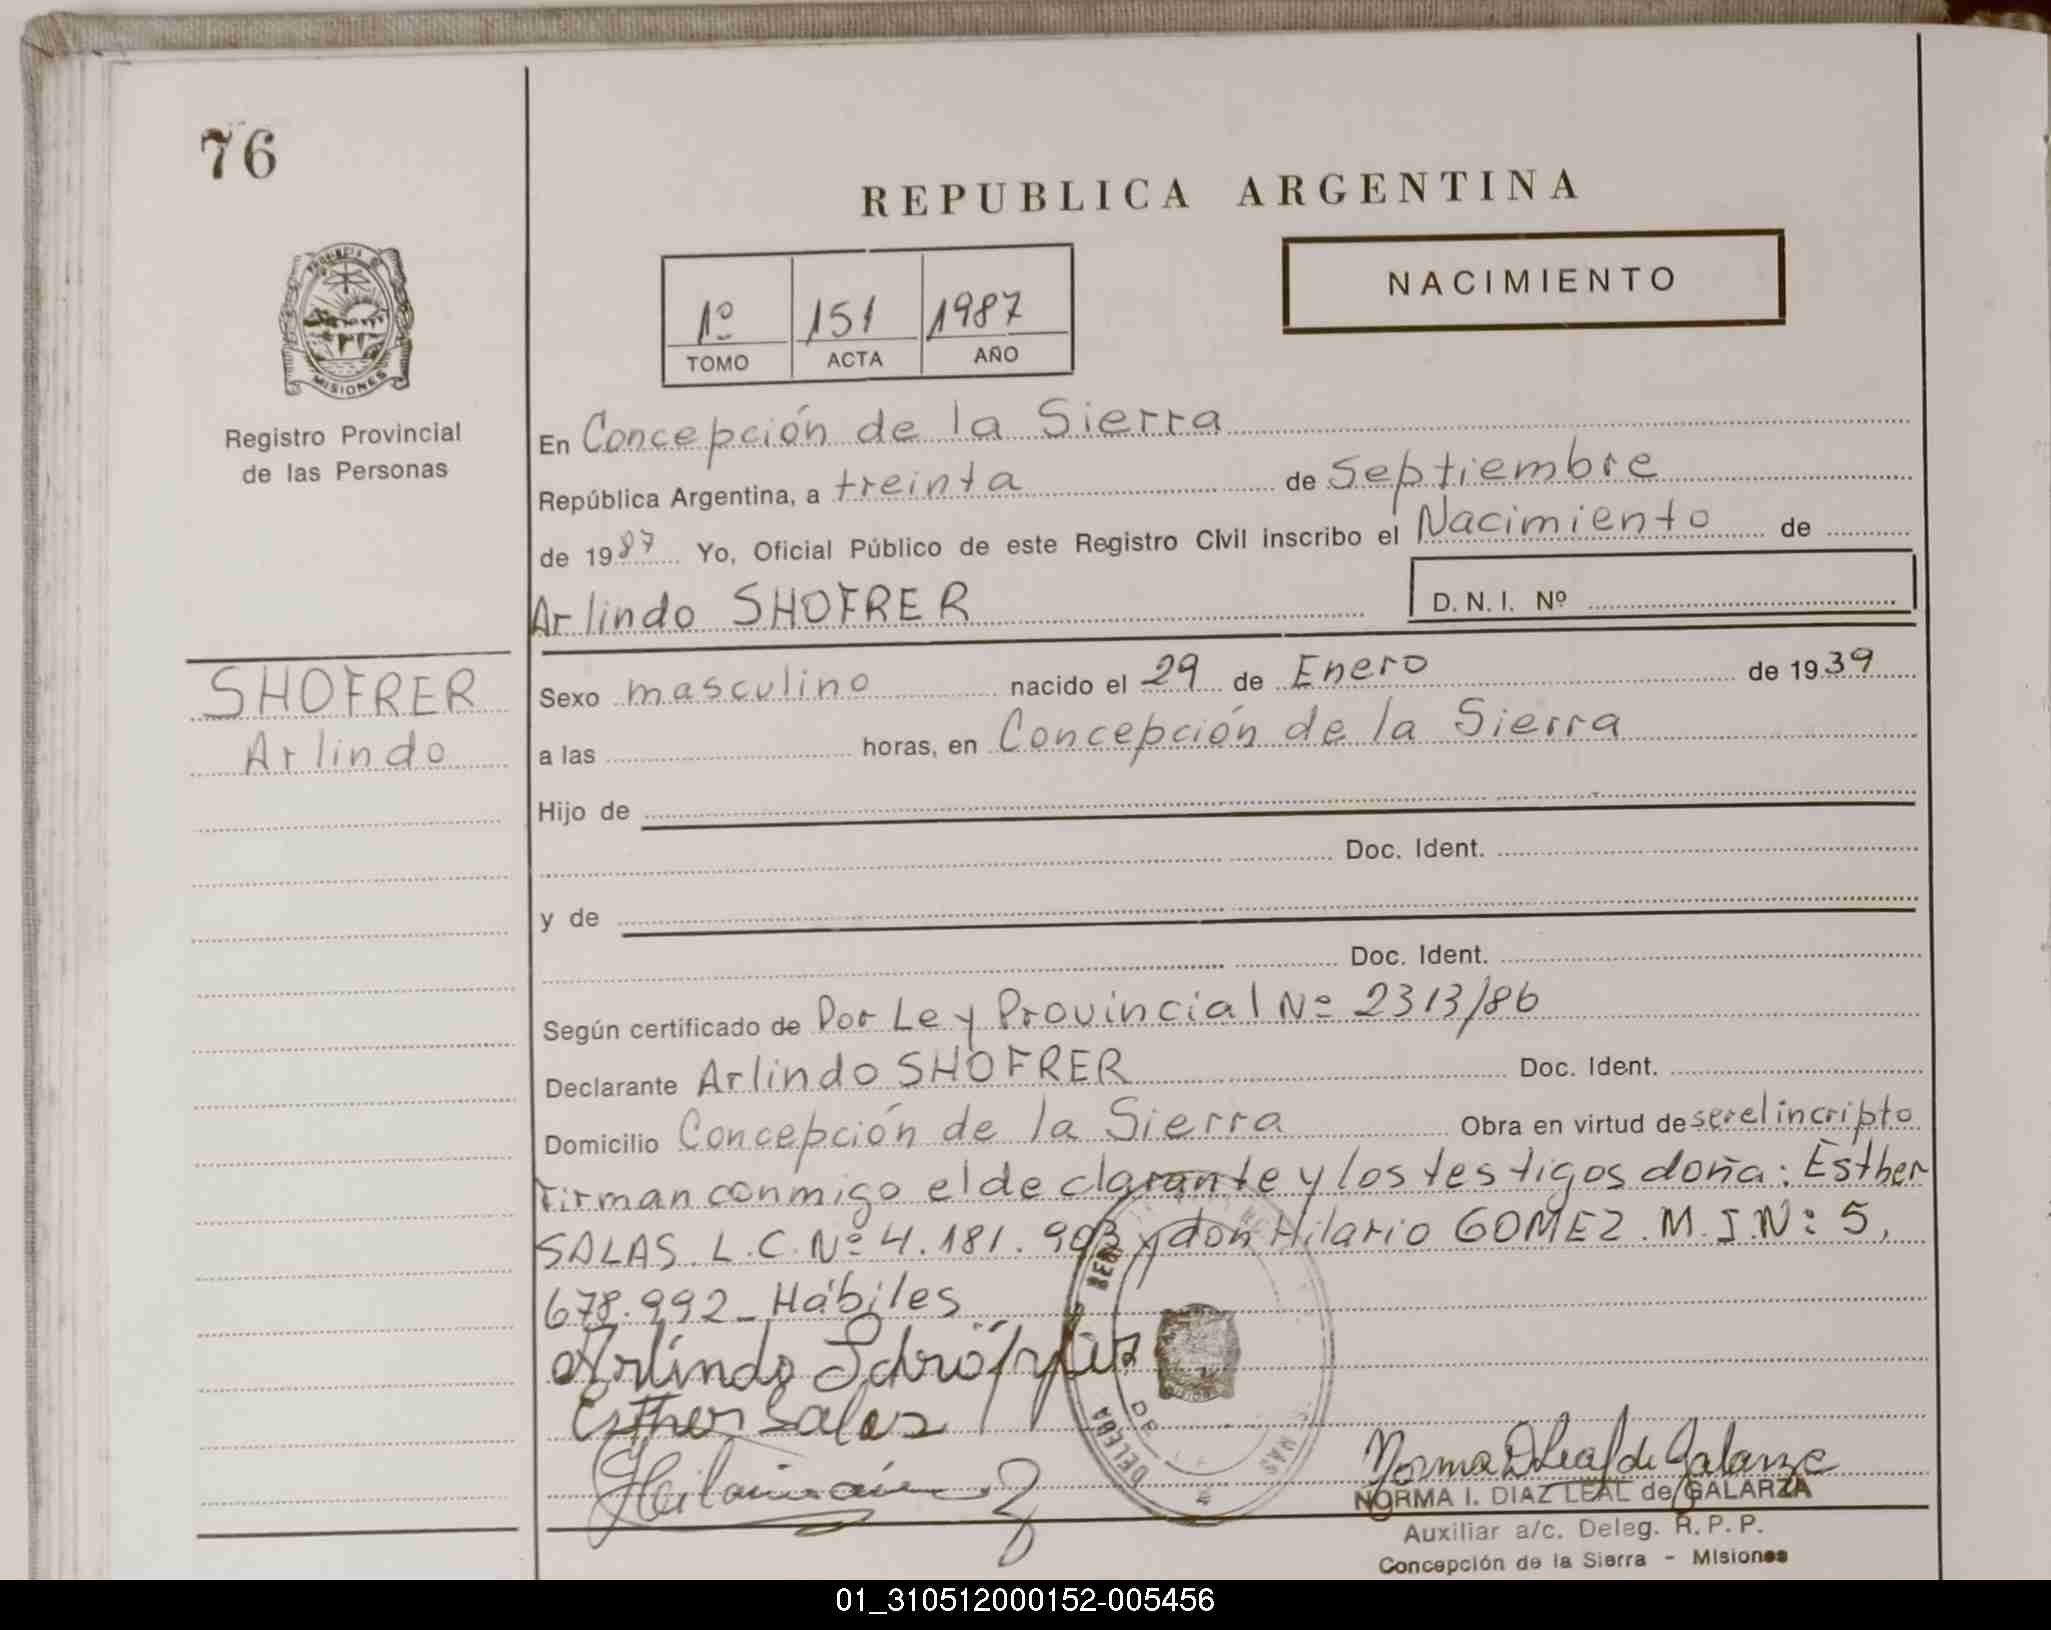 76
REPUBLICA ARGENTINA
NACIMIENTO
1º 151 1987
TOMO ACTA AÑO
PROVINCIA DE
MISIONES
Registro Provincial
de las Personas
En Concepción de la Sierra
República Argentina, a treinta de Septiembre
de 1987 Yo, Oficial Público de este Registro Civil inscribo el Nacimiento de
Arlindo SHOFRER D.N.I. Nº
SHOFRER
Arlindo
Sexo masculino nacido el 29 de Enero de 1939
a las horas, en Concepción de la Sierra
Hijo de
Doc. Ident.
y de
Doc. Ident.
Según certificado de Por Ley Provincial Nº 2313/86
Declarante Arlindo SHOFRER Doc. Ident.
Domicilio Concepción de la Sierra Obra en virtud de ser el incripto
Firman conmigo el declarante y los testigos doña: Esther
SALAS. L.C. Nº 4.181.903 y don Hilario GOMEZ. M.I.Nº: 5,
678.992_Hábiles
Arlindo
Esther Salas
DELEGA
DE
Norma D Leal de Galarza
NORMA I. DIAZ LEAL de GALARZA
Auxiliar a/c. Deleg. R.P.P.
Concepción de la Sierra - Misiones
01_310512000152-005456